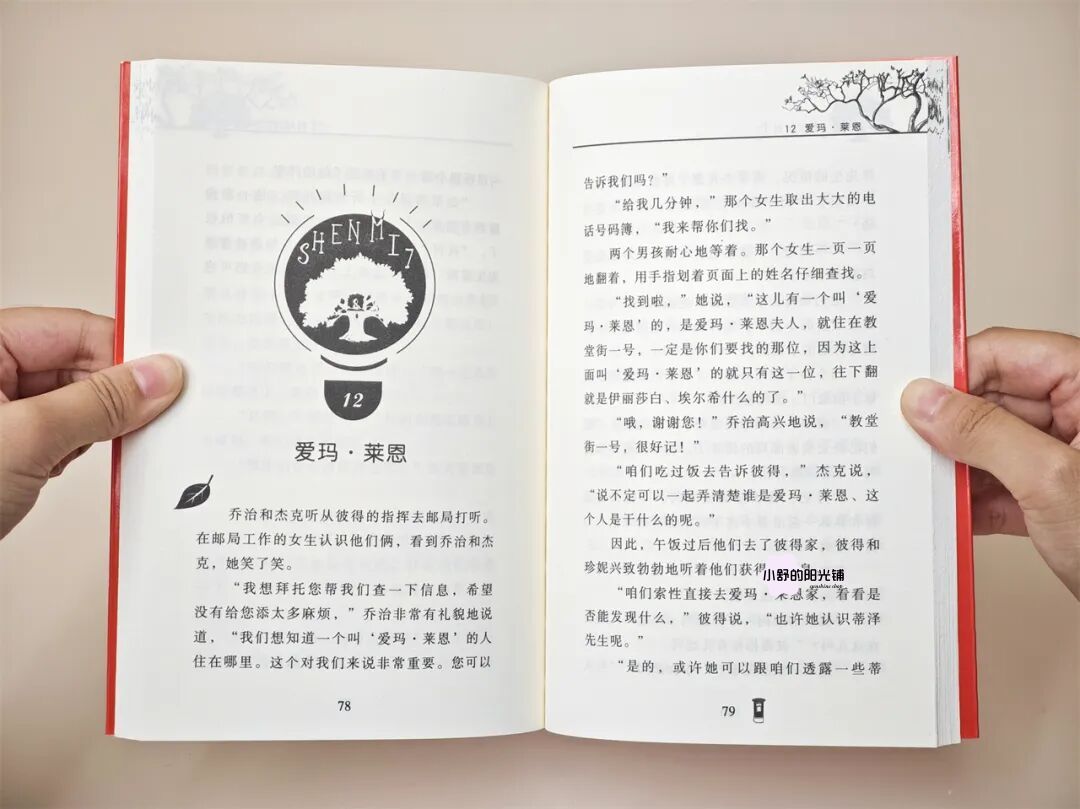 SHENMI7
12
爱玛·莱恩
乔治和杰克听从彼得的指挥去邮局打听。
在邮局工作的女生认识他们俩，看到乔治和杰
克，她笑了笑。
“我想拜托您帮我们查一下信息，希望
没有给您添太多麻烦，”乔治非常有礼貌地说
道，“我们想知道一个叫‘爱玛·莱恩’的人
住在哪里。这个对我们来说非常重要。您可以
78
12 爱玛·莱恩
告诉我们吗？”
“给我几分钟，”那个女生取出大大的电
话号码簿，“我来帮你们找。”
两个男孩耐心地等着。那个女生一页一页
地翻着，用手指划着页面上的姓名仔细查找。
“找到啦，”她说，“这儿有一个叫‘爱
玛·莱恩’的，是爱玛·莱恩夫人，就住在教
堂街一号，一定是你们要找的那位，因为这上
面叫‘爱玛·莱恩’的就只有这一位，往下翻
就是伊丽莎白、埃尔希什么的了。”
“哦，谢谢您！”乔治高兴地说，“教堂
街一号，很好记！”
“咱们吃过饭去告诉彼得，”杰克说，
“说不定可以一起弄清楚谁是爱玛·莱恩、这
个人是干什么的呢。”
因此，午饭过后他们去了彼得家，彼得和
珍妮兴致勃勃地听着他们获得
小舒的阳光铺
“咱们索性直接去爱玛·莱恩家，看看是
否能发现什么，”彼得说，“也许她认识蒂泽
先生呢。”
“是的，或许她可以跟咱们透露一些蒂
79